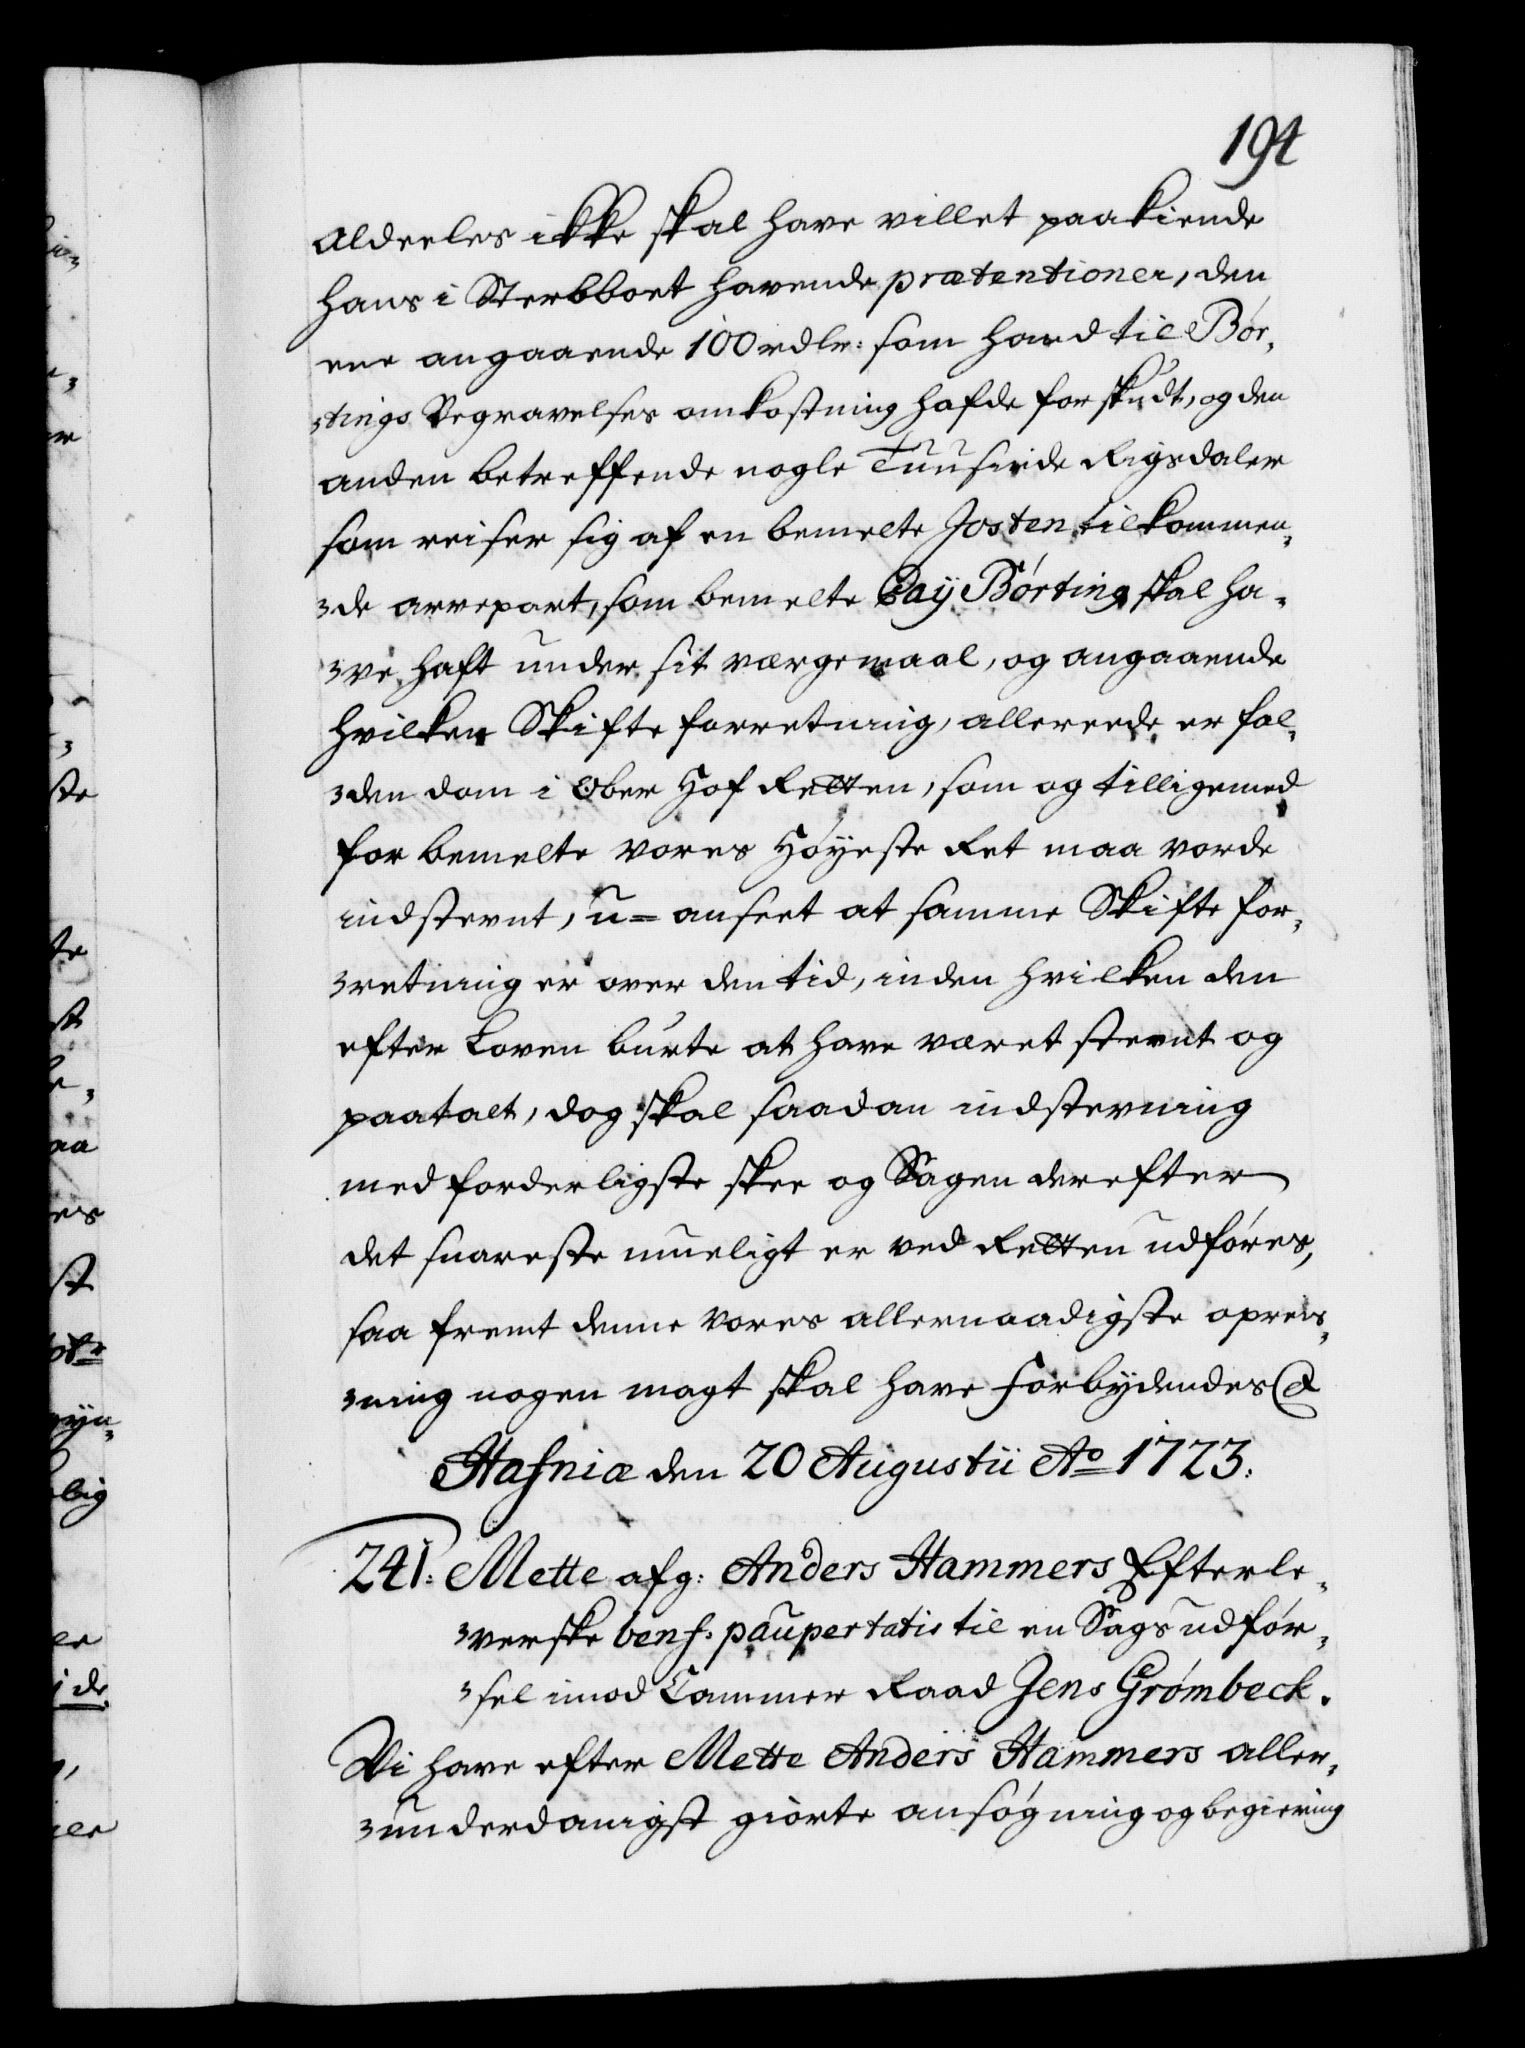 194
aldeeles ikke skal have villet paakiende
hans i Sterbboet havende prætentioner, den
eene angaaende 100 rdlr: som hand til Bør„
„tings Begravelses omkostning hafde forskudt, og den
anden betreffende nogle Tuusinde Rigsdaler
som reiser sig af en bemelte Josten tilkommen„
„de arvepart, som bemelte Caÿ Børting skal ha„
„ve haft under sit værgemaal, og angaaende
hvilken Skifte forretning, allereede er fal„
„den dom i Ober Hof Retten, som og tilligemed
for bemelte vores Høyeste Ret maa vorde
indstevnt, u-anseet at samme Skifte for„
„retning er over den tid, inden hvilken den
efter Loven burte at have været stevnt og
paatalt, dog skal saadan indstevning
med forderligste skee og Sagen derefter
det snareste mueligt er ved Retten udføres,
saa fremt denne vores allernaadigste opreis„
„ning nogen magt skal have Forbydendes &
Hafniæ den 20 Augustii Ao 1723.
241. Mette afg: Anders Hammers Efterle„
„verske benf: paupertatis til en Sags udfør„
„sel imod Cammer Raad Jens Grømbeck.
Vi have efter Mette Anders Hammers aller„
„underdanigst giorte ansøgning og begiering